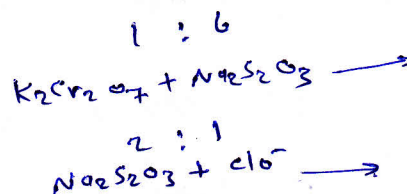 1 : 6
K2Cr2O7 + Na2S2O3 ⟶
2 : 1
Na2S2O3 + clo⁻ ⟶